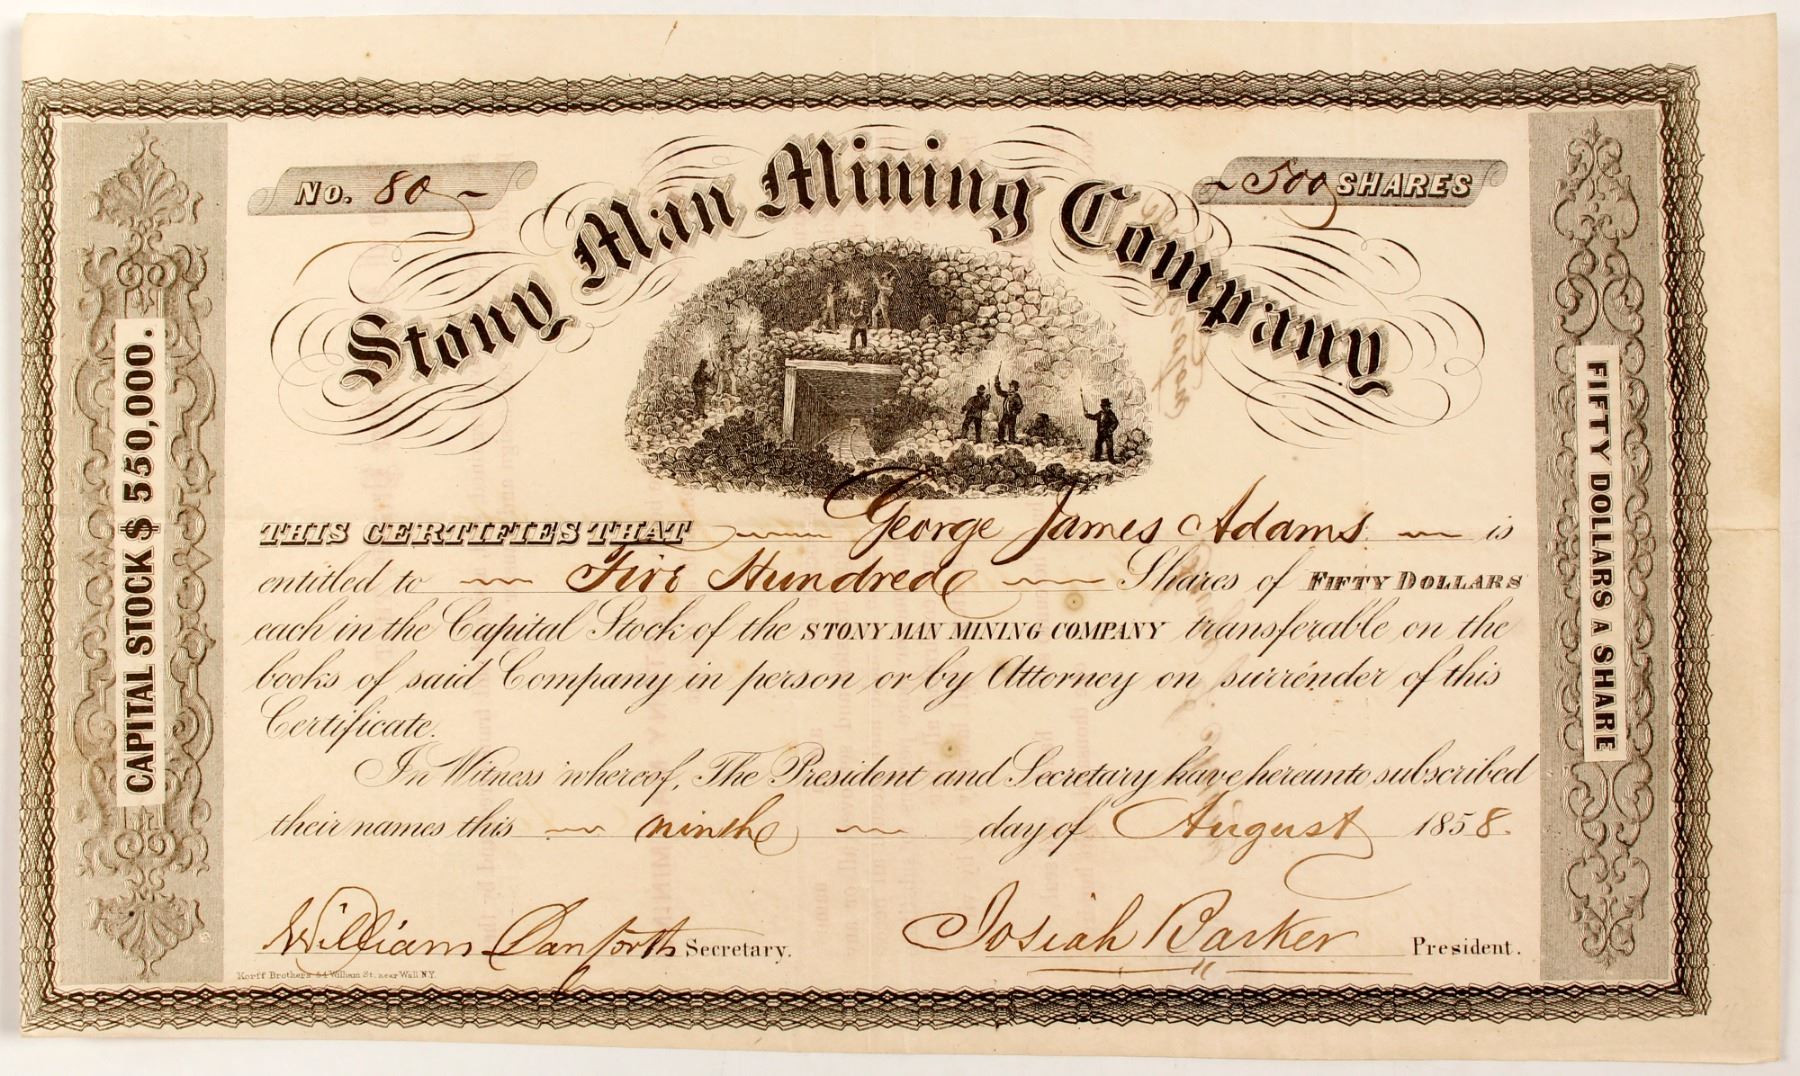 No. 80
500 SHARES
Stony Man Mining Company
CAPITAL STOCK $ 550,000.
FIFTY DOLLARS A SHARE
THIS CERTIFIES THAT George James Adams is
entitled to Five Hundred Shares of FIFTY DOLLARS
each in the Capital Stock of the STONY MAN MINING COMPANY transferable on the
books of said Company in person or by Attorney on surrender of this
Certificate.
In Witness whereof, The President and Secretary have hereunto subscribed
their names this ninth day of August 1858.
William Danforth Secretary.
Josiah Barker President.
Korff Brothers 54 William St. near Wall N.Y.